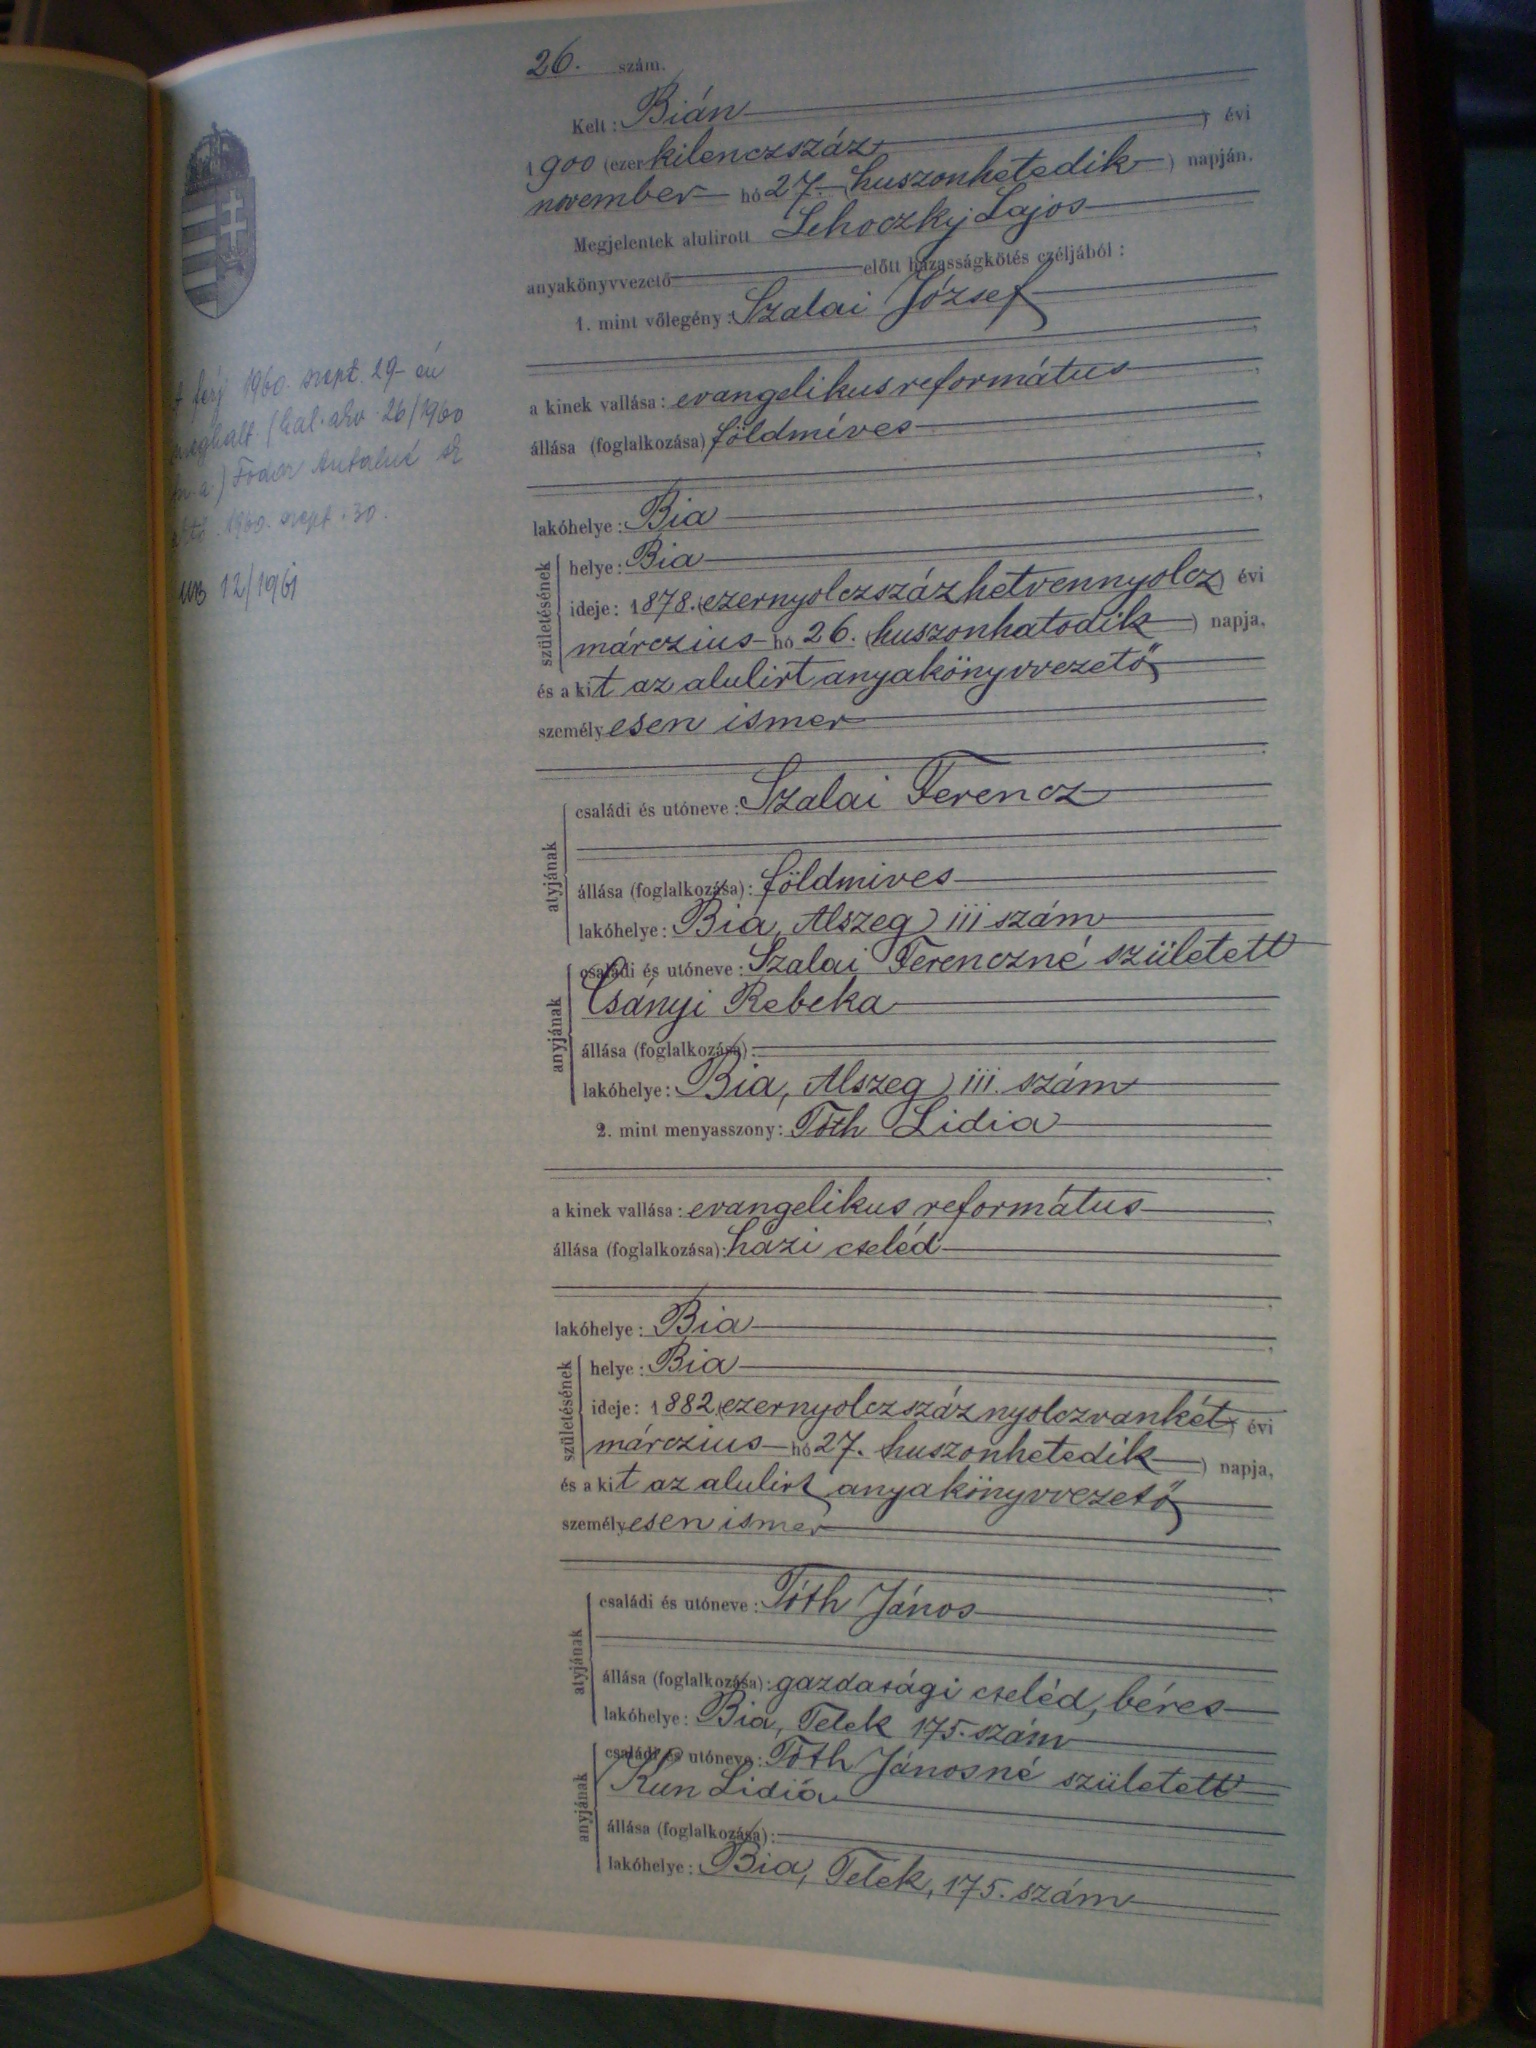 26. szám.
Kelt: Bián
1900 (ezerkilenczszáz) évi
november hó 27. (huszonhetedik) napján.
Megjelentek alulirott Lehoczky Lajos
anyakönyvvezető előtt házasságkötés czéljából:
1. mint vőlegény: Szalai József
a kinek vallása: evangelikus református
állása (foglalkozása) földmíves
lakóhelye: Bia
születésének
helye: Bia
ideje: 1878. (ezernyolczszázhetvennyolcz) évi
márczius hó 26. (huszonhatodik) napja,
és a kit az alulirt anyakönyvvezető
személyesen ismer
atyjának
családi és utóneve: Szalai Ferencz
állása (foglalkozása): földmives
lakóhelye: Bia, Alszeg 111 szám
anyjának
családi és utóneve: Szalai Ferenczné született
Csányi Rebeka
állása (foglalkozása):
lakóhelye: Bia, Alszeg 111. szám
2. mint menyasszony: Tóth Lidia
a kinek vallása: evangelikus református
állása (foglalkozása): házi cseléd
lakóhelye: Bia
születésének
helye: Bia
ideje: 1882 (ezernyolczszáznyolczvankét) évi
márczius hó 27. huszonhetedik) napja,
és a kit az alulirt anyakönyvvezető
személyesen ismer
atyjának
családi és utóneve: Tóth János
állása (foglalkozása): gazdasági cseléd, béres
lakóhelye: Bia, Telek 175. szám
anyjának
családi és utóneve: Tóth Jánosné született
Kun Lidia
állása (foglalkozása):
lakóhelye: Bia, Telek, 175. szám
A férj 1960. szept. 29-én
meghalt. (hal. akv. 26/1960
Fodor Antalné
1960. szept. 30.
12/1961